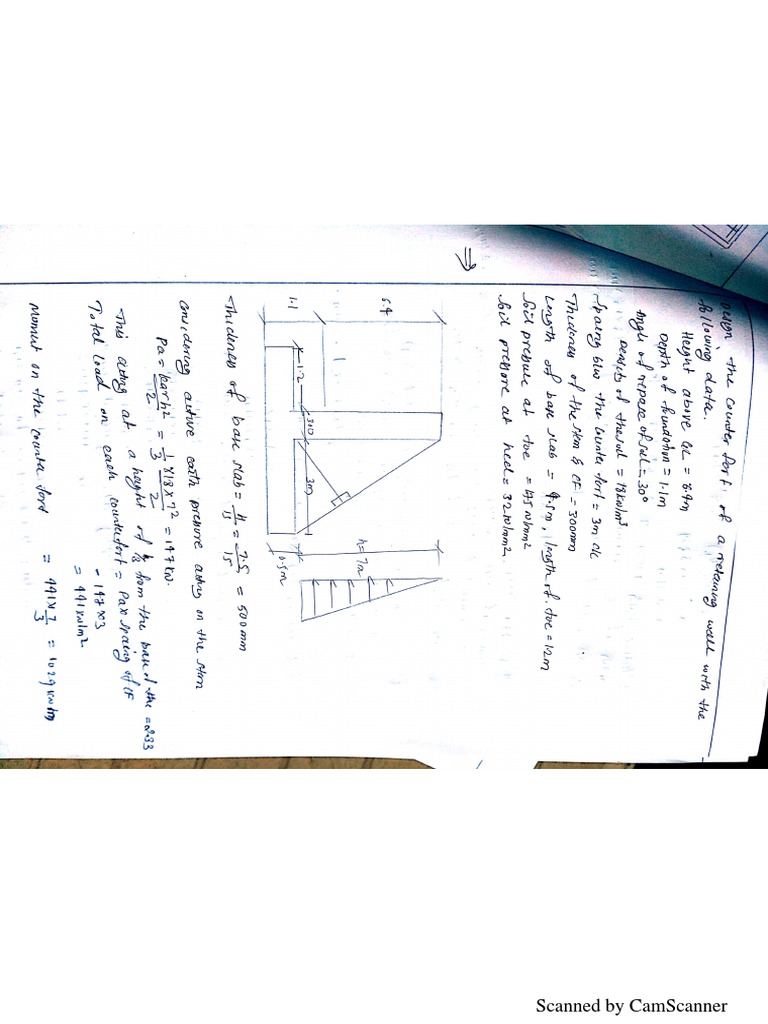 Design the counter fort of a retaining wall with the
following data.
Height above GL = 6.4m
Depth of foundation = 1.1m
Angle of repose of soil = 30°
Density of the soil = 18kN/m³
Spacing b/w the counter fort = 3m c/c
Thickness of the stem & CF = 300mm
Length of base slab = 4.5m, length of toe = 1.2m
Soil pressure at toe
Soil pressure at heel = 32kN/mm²
⇒
6.4
1.1
1.2
300
3m
h=7m
0.5m
Thickness of base slab = H/15 = 7.5/15 = 500mm
Considering active earth pressure acting on the stem
Pa = kaγh²/2 = 1/3 × 18×7²/2 = 147kN.
This acting at a height of h/3 from the base of the = 2.33
Total load on each counterfort = Pa x spacing of CF
= 147×3
= 441kN/m²
Moment on the counter fort = 441×7/3 = 1029kN/m
Scanned by CamScanner